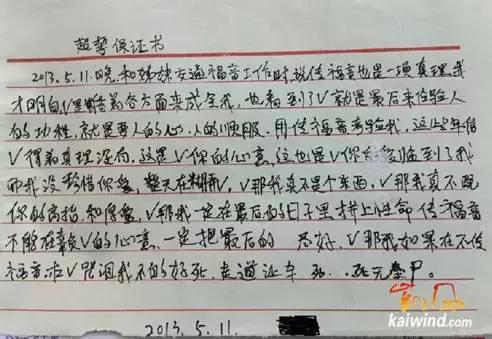 起誓保证书
2013.5.11.晚和姊妹交通福音工作时,说传福音也是一项真理,我
才明白V是借着各方面来成全我,也看到了V就是最后来检验人
的功性,就是要人的心、人的顺服,用传福音考验我,这些年信
V得着真理没有,这是V你的心意,这也是V你 临到了我
而我没珍惜你爱,整天在糊弄,V那我真不是个东西,V那我真不配
你的高抬和怜爱,V那我一定在最后的日子里拼上性命传福音
不能在辜负V的心意,一定把最后的 尽好,V那我如果在不传
福音求V咒诅我不的好死,走道让车 死无 。
2013.5.11.
凯风网
kaiwind.com